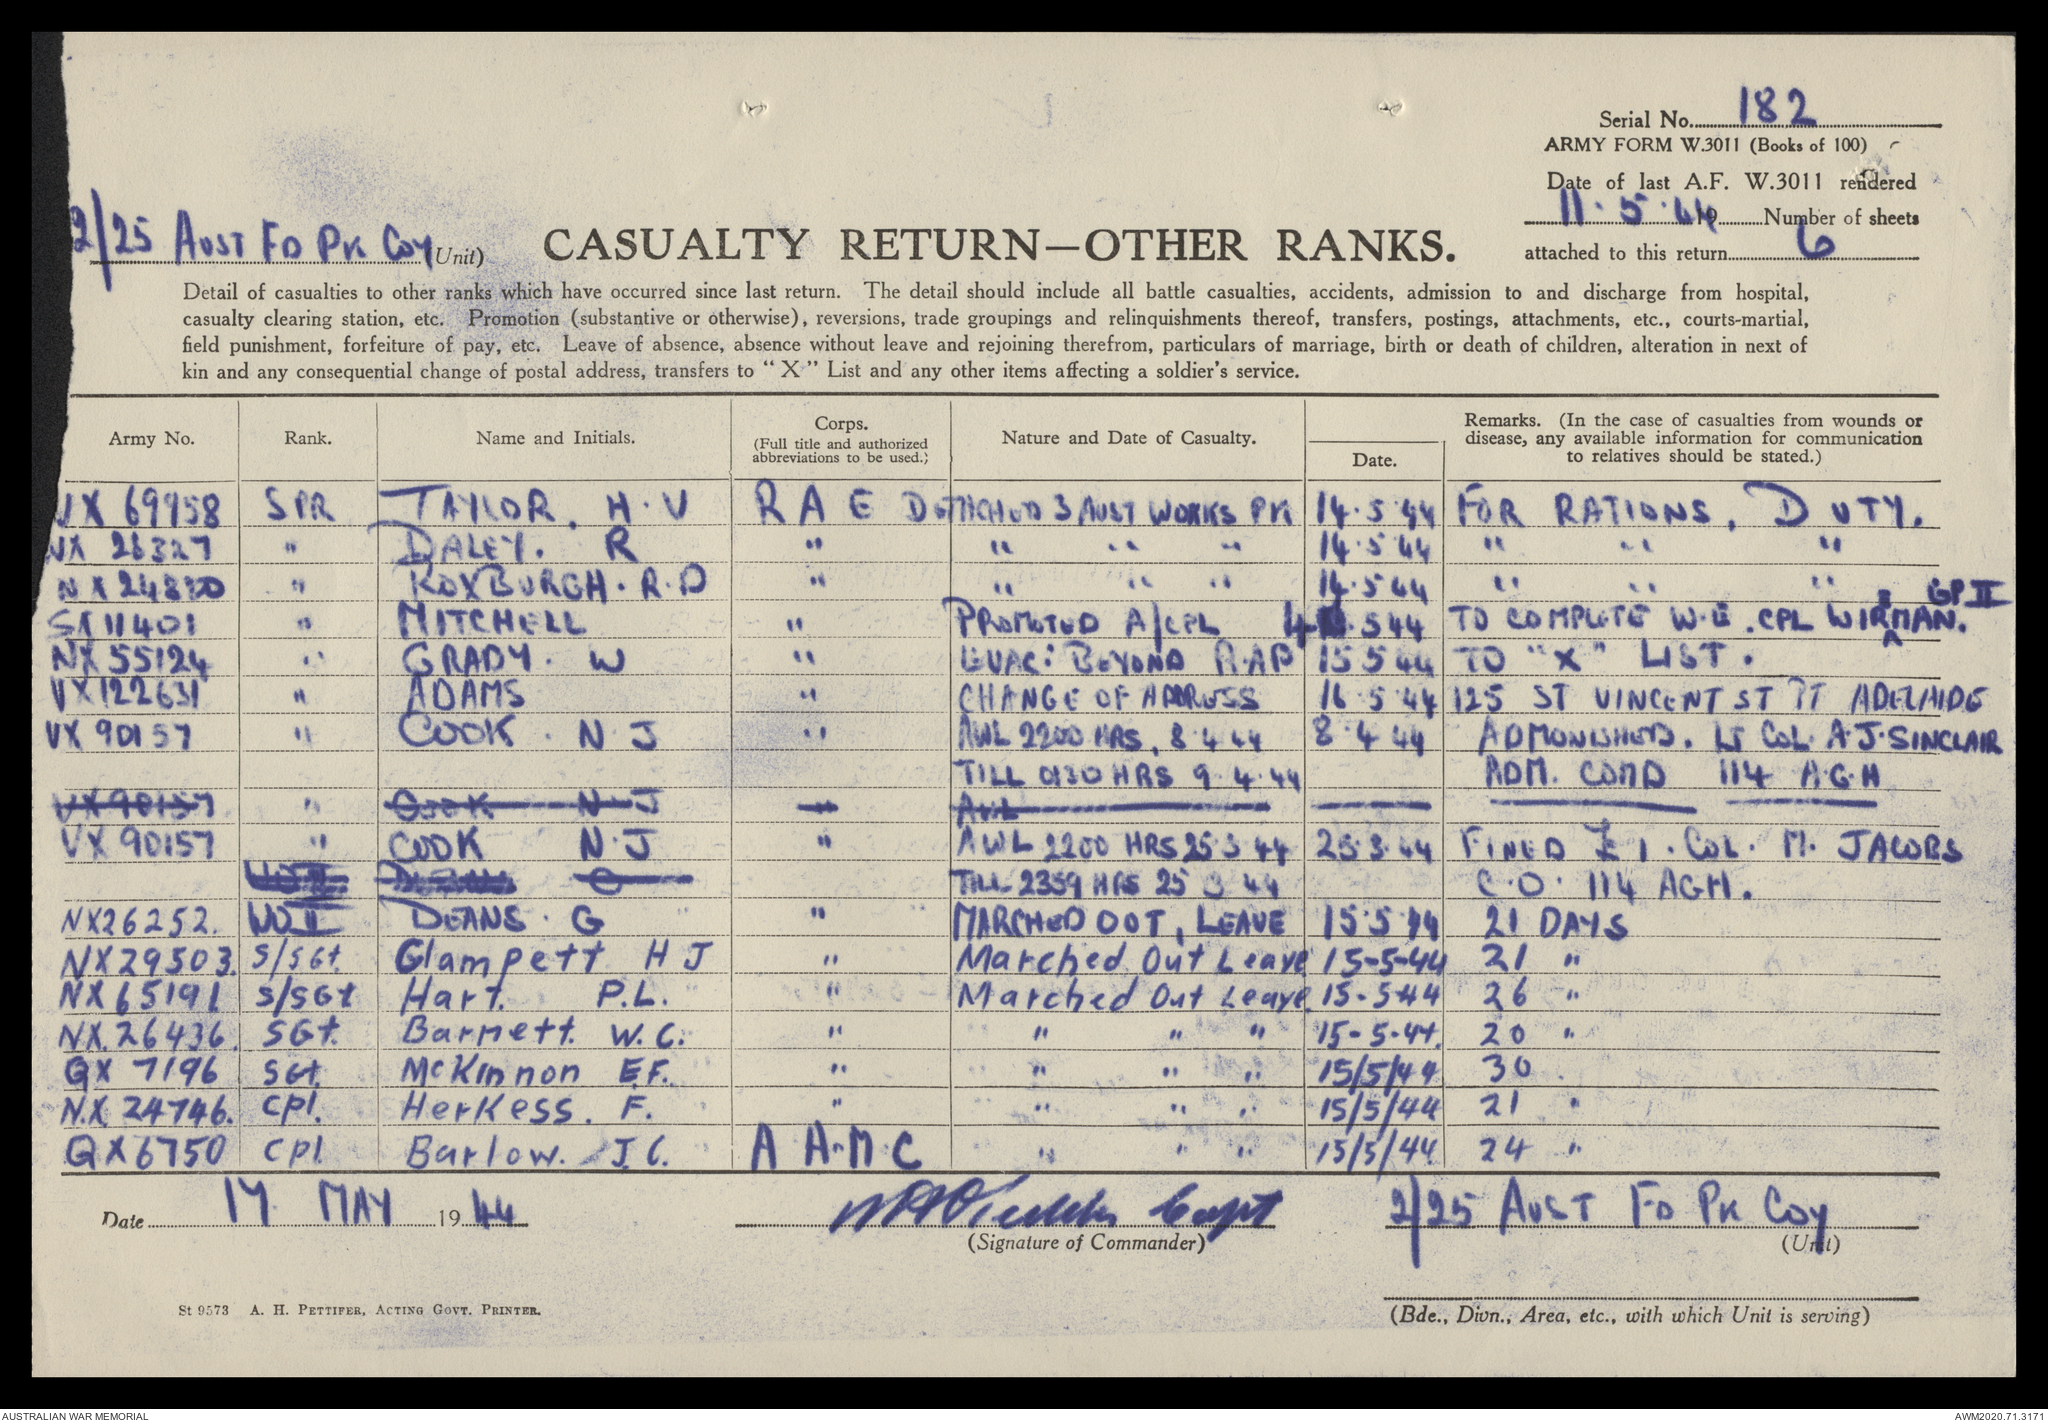 Serial No. 182
ARMY FORM W.3011 (Books of 100)
Date of last A.F. W.3011 rendered
11.5.44 19 Number of sheets
attached to this return 6
2/25 AUST FD PK COY (Unit)
CASUALTY RETURN—OTHER RANKS.
Detail of casualties to other ranks which have occurred since last return. The detail should include all battle casualties, accidents, admission to and discharge from hospital,
casualty clearing station, etc. Promotion (substantive or otherwise), reversions, trade groupings and relinquishments thereof, transfers, postings, attachments, etc., courts-martial,
field punishment, forfeiture of pay, etc. Leave of absence, absence without leave and rejoining therefrom, particulars of marriage, birth or death of children, alteration in next of
kin and any consequential change of postal address, transfers to "X" List and any other items affecting a soldier's service.
Army No. Rank. Name and Initials. Corps. (Full title and authorized abbreviations to be used.) Nature and Date of Casualty. Date. Remarks. (In the case of casualties from wounds or disease, any available information for communication to relatives should be stated.)
VX 69958 SPR TAYLOR. H.V R A E DETACHED 3 AUST WORKS PK 14.5.44 FOR RATIONS, DUTY.
" DALEY. R " " " " 14.5.44 " " "
" ROXBURGH. R.D " " " " 14.5.44 " " "
11401 " MITCHELL " PROMOTED A/CPL 5 44 TO COMPLETE W.E. CPL WIREMAN. GP II
NX 55124 " GRADY. W " EVAC: BEYOND R.A.P 15 5 44 TO "X" LIST.
VX122631 " ADAMS " CHANGE OF ADDRESS 16.5.44 125 ST VINCENT ST PT ADELAIDE
VX 90157 " COOK. N J " AWL 2200 HRS, 8 4 44 8.4.44 ADMONISHED. LT COL. A.J. SINCLAIR
TILL 0130 HRS 9.4.44 ADM. COMD 114 A.G.H
VX 90157 " COOK N.J " AWL
VX 90157 " COOK N.J " AWL 2200 HRS 25.3.44 25.3.44 FINED £1. COL. M. JACOBS
TILL 2359 HRS 25 3 44 C.O. 114 AGH.
NX26252. WO II DEANS. G " MARCHED OUT, LEAVE 15.5.44 21 DAYS
NX29503. S/SGt. Glampett H J " Marched Out Leave 15-5-44 21 "
NX65191 S/SGt Hart. P.L. " Marched Out Leave. 15-5-44 26 "
NX.26436. SGt. Barnett. W.C. " " " " 15-5-44. 20 "
QX 7196 SGt. McKinnon E.F. " " " " 15/5/44 30
N.X 24746. Cpl. Herkess. F. " " " " 15/5/44 21 "
QX6750 Cpl Barlow. J.C. A A.M.C " " " 15/5/44. 24 "
Date 17 MAY 1944 Capt 2/25 AUST FD PK COY
(Signature of Commander) (Unit)
St 9573 A. H. PETTIFER, ACTING GOVT. PRINTER.
(Bde., Divn., Area, etc., with which Unit is serving)
AUSTRALIAN WAR MEMORIAL AWM2020.71.3171